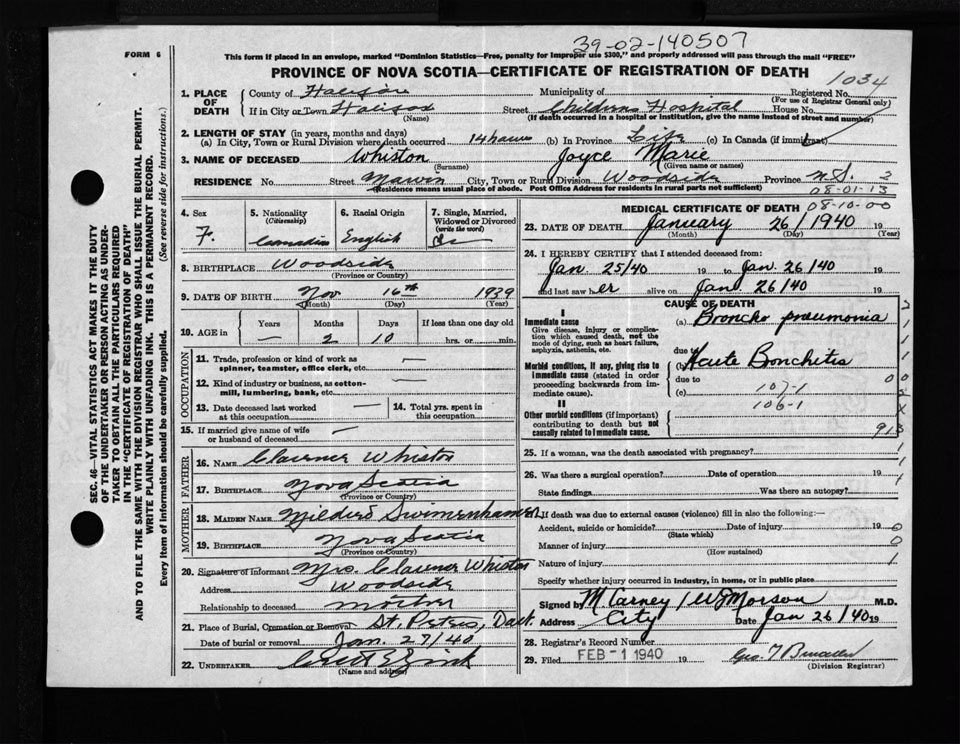 39-02-140507
FORM 6
This form if placed in an envelope, marked "Dominion Statistics—Free, penalty for improper use $300," and properly addressed will pass through the mail "FREE"
PROVINCE OF NOVA SCOTIA—CERTIFICATE OF REGISTRATION OF DEATH
1034
1. PLACE OF DEATH County of Halifax Municipality of Registered No.
(For use of Registrar General only)
If in City or Town Halifax Street Childrens Hospital House No.
(Name) (If death occurred in a hospital or institution, give the name instead of street and number)
2. LENGTH OF STAY (in years, months and days)
(a) In City, Town or Rural Division where death occurred 14 hours (b) In Province Life (c) In Canada (if immigrant)
3. NAME OF DECEASED Whiston Joyce Marie
(Surname) (Given name or names)
RESIDENCE No. Street Marvin City, Town or Rural Division Woodside Province N.S. 2
(Residence means usual place of abode. Post Office Address for residents in rural parts not sufficient)
08-01-13
08-10-00
SEC. 46—VITAL STATISTICS ACT MAKES IT THE DUTY
OF THE UNDERTAKER OR PERSON ACTING AS UNDER-
TAKER TO OBTAIN ALL THE PARTICULARS REQUIRED
IN THE "CERTIFICATE OF REGISTRATION OF DEATH"
AND TO FILE THE SAME WITH THE DIVISION REGISTRAR WHO SHALL ISSUE THE BURIAL PERMIT.
WRITE PLAINLY WITH UNFADING INK. THIS IS A PERMANENT RECORD.
Every item of information should be carefully supplied. (See reverse side for instructions.)
4. Sex 5. Nationality 6. Racial Origin 7. Single, Married,
(Citizenship) Widowed or Divorced
(write the word)
F. Canadian English
8. BIRTHPLACE Woodside
(Province or Country)
9. DATE OF BIRTH Nov 16th 1939
(Month) (Day) (Year)
10. AGE in Years Months Days If less than one day old
— 2 10 hrs. or min.
OCCUPATION
11. Trade, profession or kind of work as —
spinner, teamster, office clerk, etc.
12. Kind of industry or business, as cotton- —
mill, lumbering, bank, etc.
13. Date deceased last worked — 14. Total yrs. spent in —
at this occupation this occupation
15. If married give name of wife —
or husband of deceased
FATHER
16. NAME Clarence Whiston
17. BIRTHPLACE Nova Scotia
(Province or Country)
MOTHER
18. MAIDEN NAME Mildred
19. BIRTHPLACE Nova Scotia
(Province or Country)
20. Signature of informant Mrs. Clarence Whiston
Address Woodside
Relationship to deceased mother
21. Place of Burial, Cremation or Removal St. Peters, Dart.
Date of burial or removal Jan. 27/40
22. UNDERTAKER Zink
(Name and address)
MEDICAL CERTIFICATE OF DEATH
23. DATE OF DEATH January 26/1940 19
(Month) (Day) (Year)
24. I HEREBY CERTIFY that I attended deceased from:
Jan. 25/40 19 to Jan. 26/40 19
and last saw her alive on Jan 26/40 19
CAUSE OF DEATH
I
Immediate cause (a) Broncho pneumonia
Give disease, injury or complica-
tion which caused death, not the
mode of dying, such as heart failure,
asphyxia, asthenia, etc.
due to Acute Bronchitis
Morbid conditions, if any, giving rise to
immediate cause (stated in order
proceeding backwards from im-
mediate cause).
due to
(c) 107-1
106-1
II
Other morbid conditions (if important)
contributing to death but not
causally related to immediate cause.
913
25. If a woman, was the death associated with pregnancy?
26. Was there a surgical operation? Date of operation 19
State findings Was there an autopsy?
If death was due to external causes (violence) fill in also the following:—
Accident, suicide or homicide? Date of injury 19
(State which)
Manner of injury
(How sustained)
Nature of injury
Specify whether injury occurred in industry, in home, or in public place
Signed by M Carney / W Morson M.D.
Address City Date Jan 26/40 19
28. Registrar's Record Number
29. Filed FEB -1 1940 19 Geo. T
(Division Registrar)